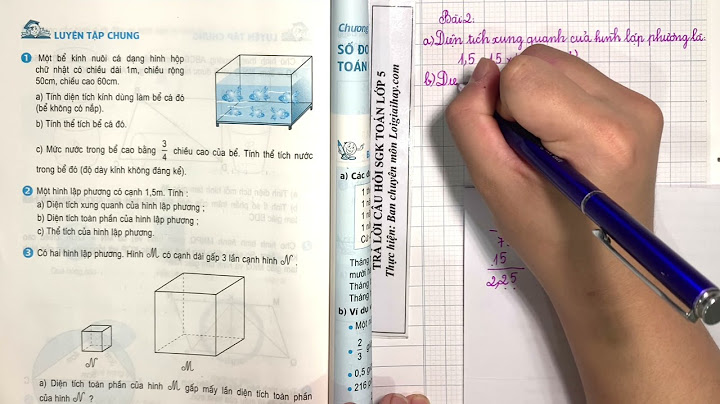 LUYỆN TẬP CHUNG
1 Một bể kính nuôi cá dạng hình hộp
chữ nhật có chiều dài 1m, chiều rộng
50cm, chiều cao 60cm.
a) Tính diện tích kính dùng làm bể cá đó
(bể không có nắp).
b) Tính thể tích bể cá đó.
c) Mức nước trong bể cao bằng 3/4 chiều cao của bể. Tính thể tích nước
trong bể đó (độ dày kính không đáng kể).
2 Một hình lập phương có cạnh 1,5m. Tính :
a) Diện tích xung quanh của hình lập phương ;
b) Diện tích toàn phần của hình lập phương ;
c) Thể tích của hình lập phương.
3 Có hai hình lập phương. Hình M có cạnh dài gấp 3 lần cạnh hình N.
N
M
a) Diện tích toàn phần của hình M gấp mấy lần diện tích toàn phần
của hình N ?
Chương
SỐ ĐO
TOÁN
a) Các
Tháng
mười
Tháng
Tháng
b) Ví dụ
• Một
• 2/3
• 0,5
• 216
TRẢ LỜI CÂU HỎI SGK TOÁN LỚP 5
Thực hiện: Ban chuyên môn Loigiaihay.com
Bài 2:
a) Diện tích xung quanh của hình lập phương là:
1,5
b) Diệ
7
15
2,25